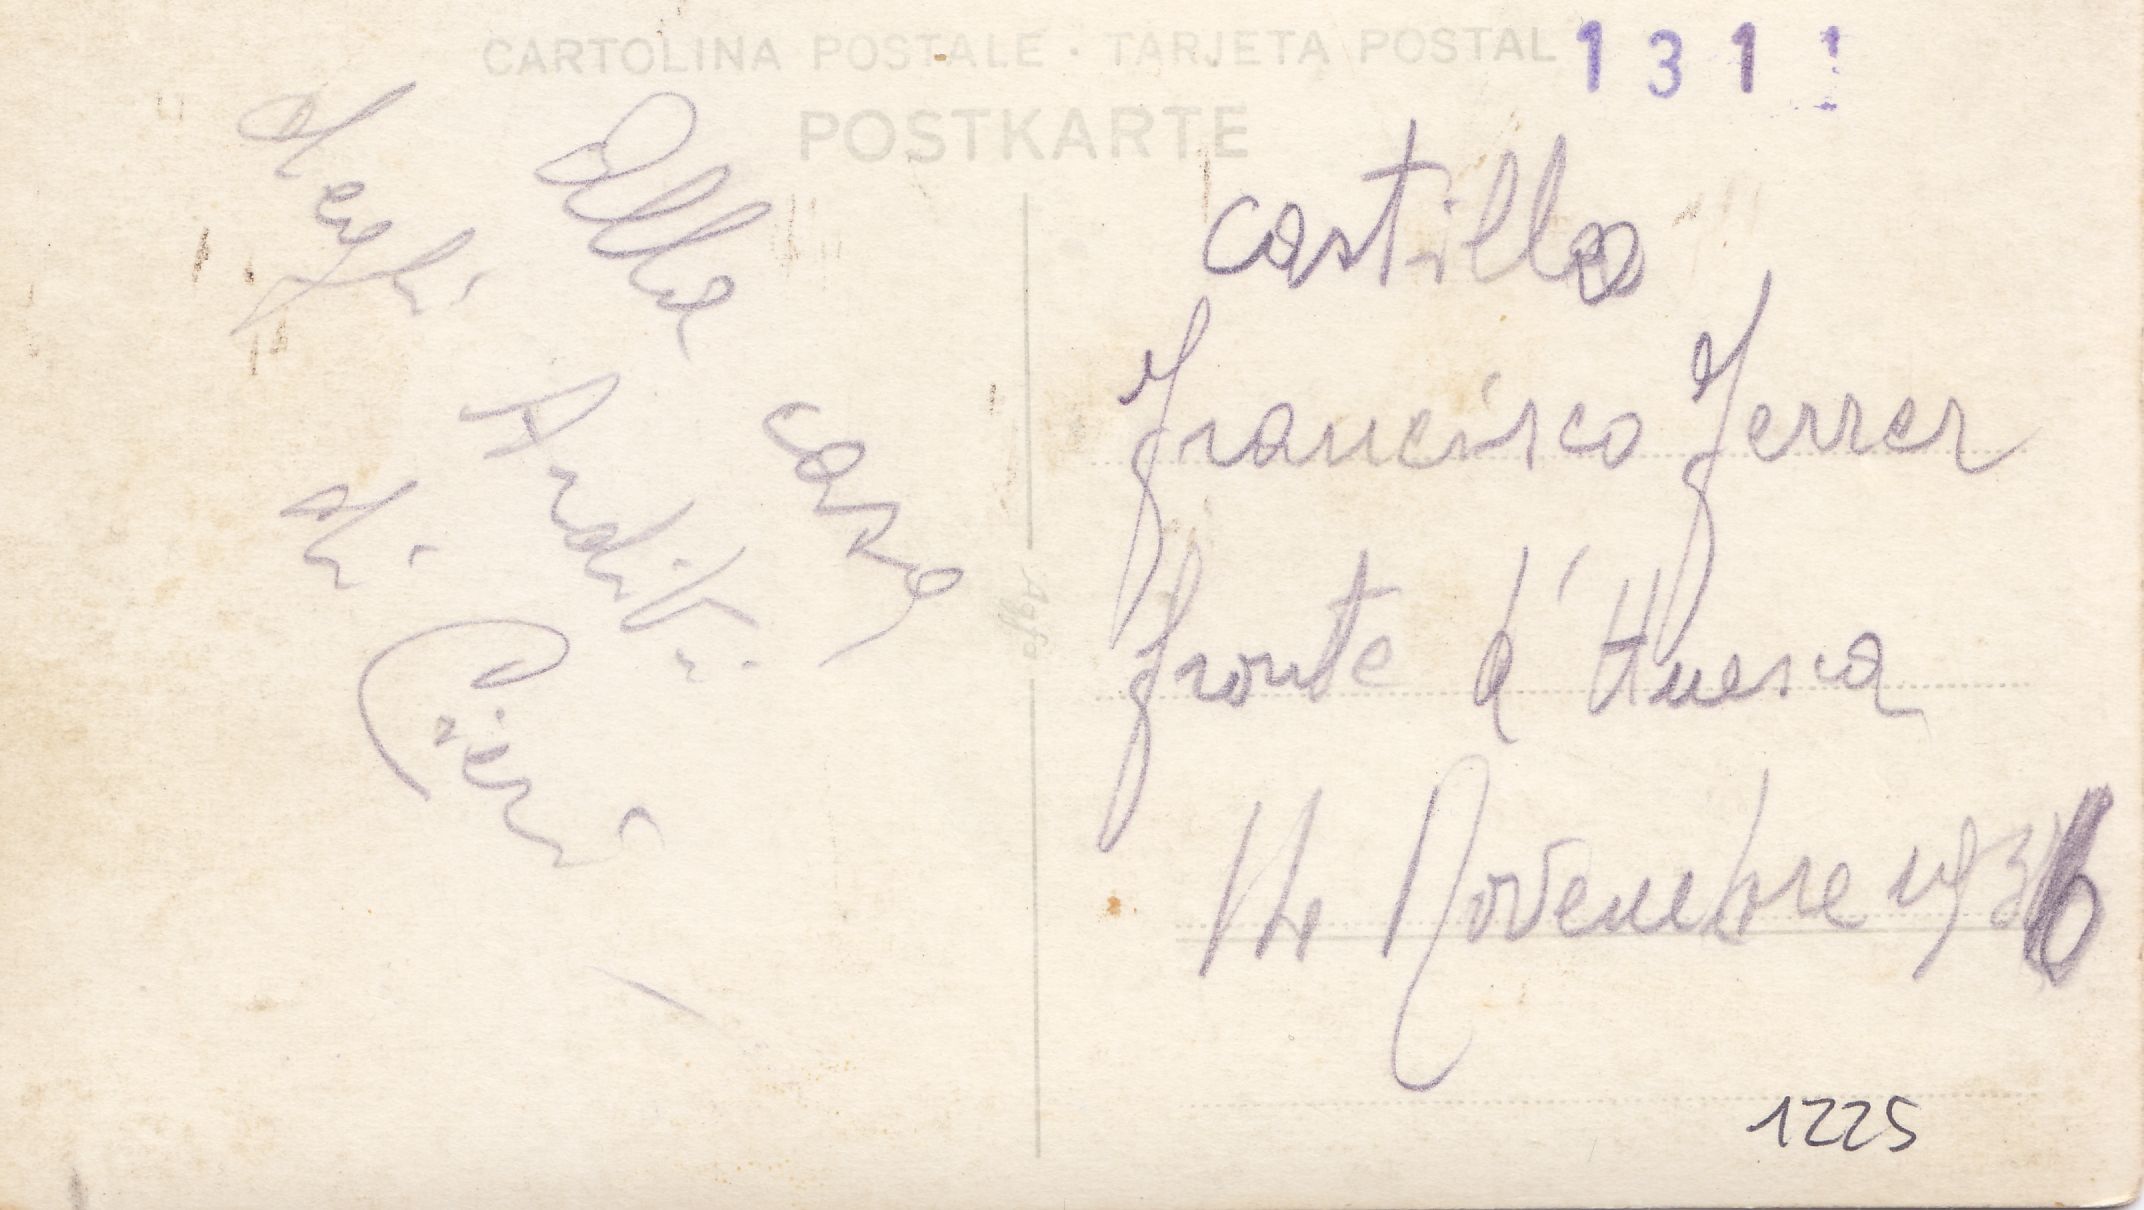 CARTOLINA POSTALE · TARJETA POSTAL
POSTKARTE
131
Alla casa
degli Arditi
di Cieri
Agfa
castillo
Francisco Ferrer
fronte d'Huesca
14 Novembre 1936
1225